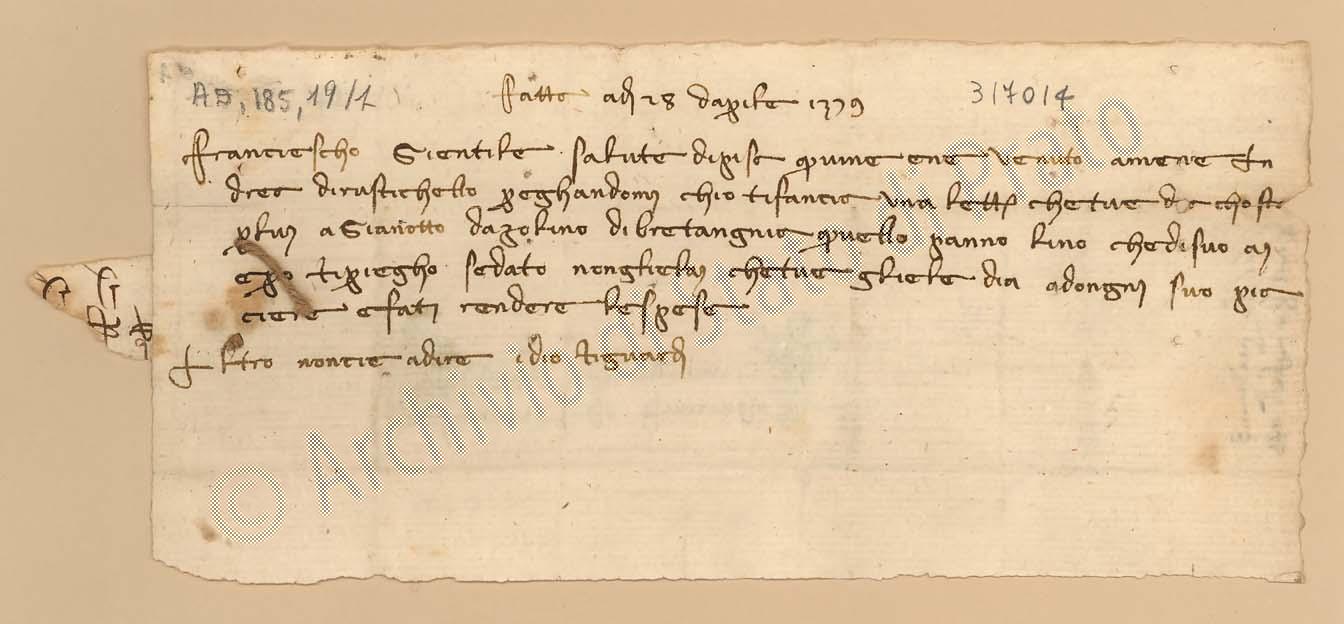 AD, 185, 19/1
317014
Fatto adi 28 daprile 1379
Franciescho Gientile salute di pisa quine ene venuto amene An
drea dirustichello preghandomi chio tifancia una lettera chetue da chosta
a Gianotto dazolino dibretangnia quello panno lino chedisuo ai
epero tipriegho sedato nonglielai chetue gliele dia adongni suo pia
ciere efati rendere lespese
Altro noncie adire idio tiguardi
© Archivio di Stato di Prato